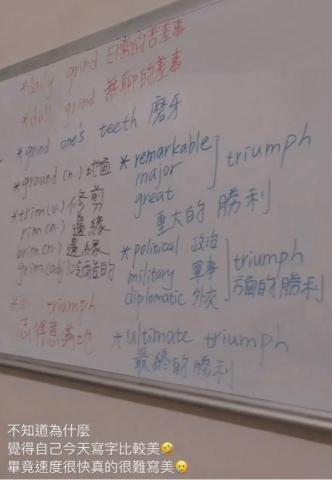 *daily grind 日常的苦差事
*dull grind 無聊的差事
*grind one's teeth 磨牙
*ground (n.) 地面
*trim (v.) 修剪
rim (n.) 邊緣
brim (n.) 邊緣
grim (adj.)
triumph
*remarkable
major
great
triumph
重大的 勝利
*political 政治
military 軍事
diplomatic 外交
triumph
方面的勝利
*ultimate triumph
最終的勝利
不知道為什麼
覺得自己今天寫字比較美🤣
畢竟速度很快真的很難寫美